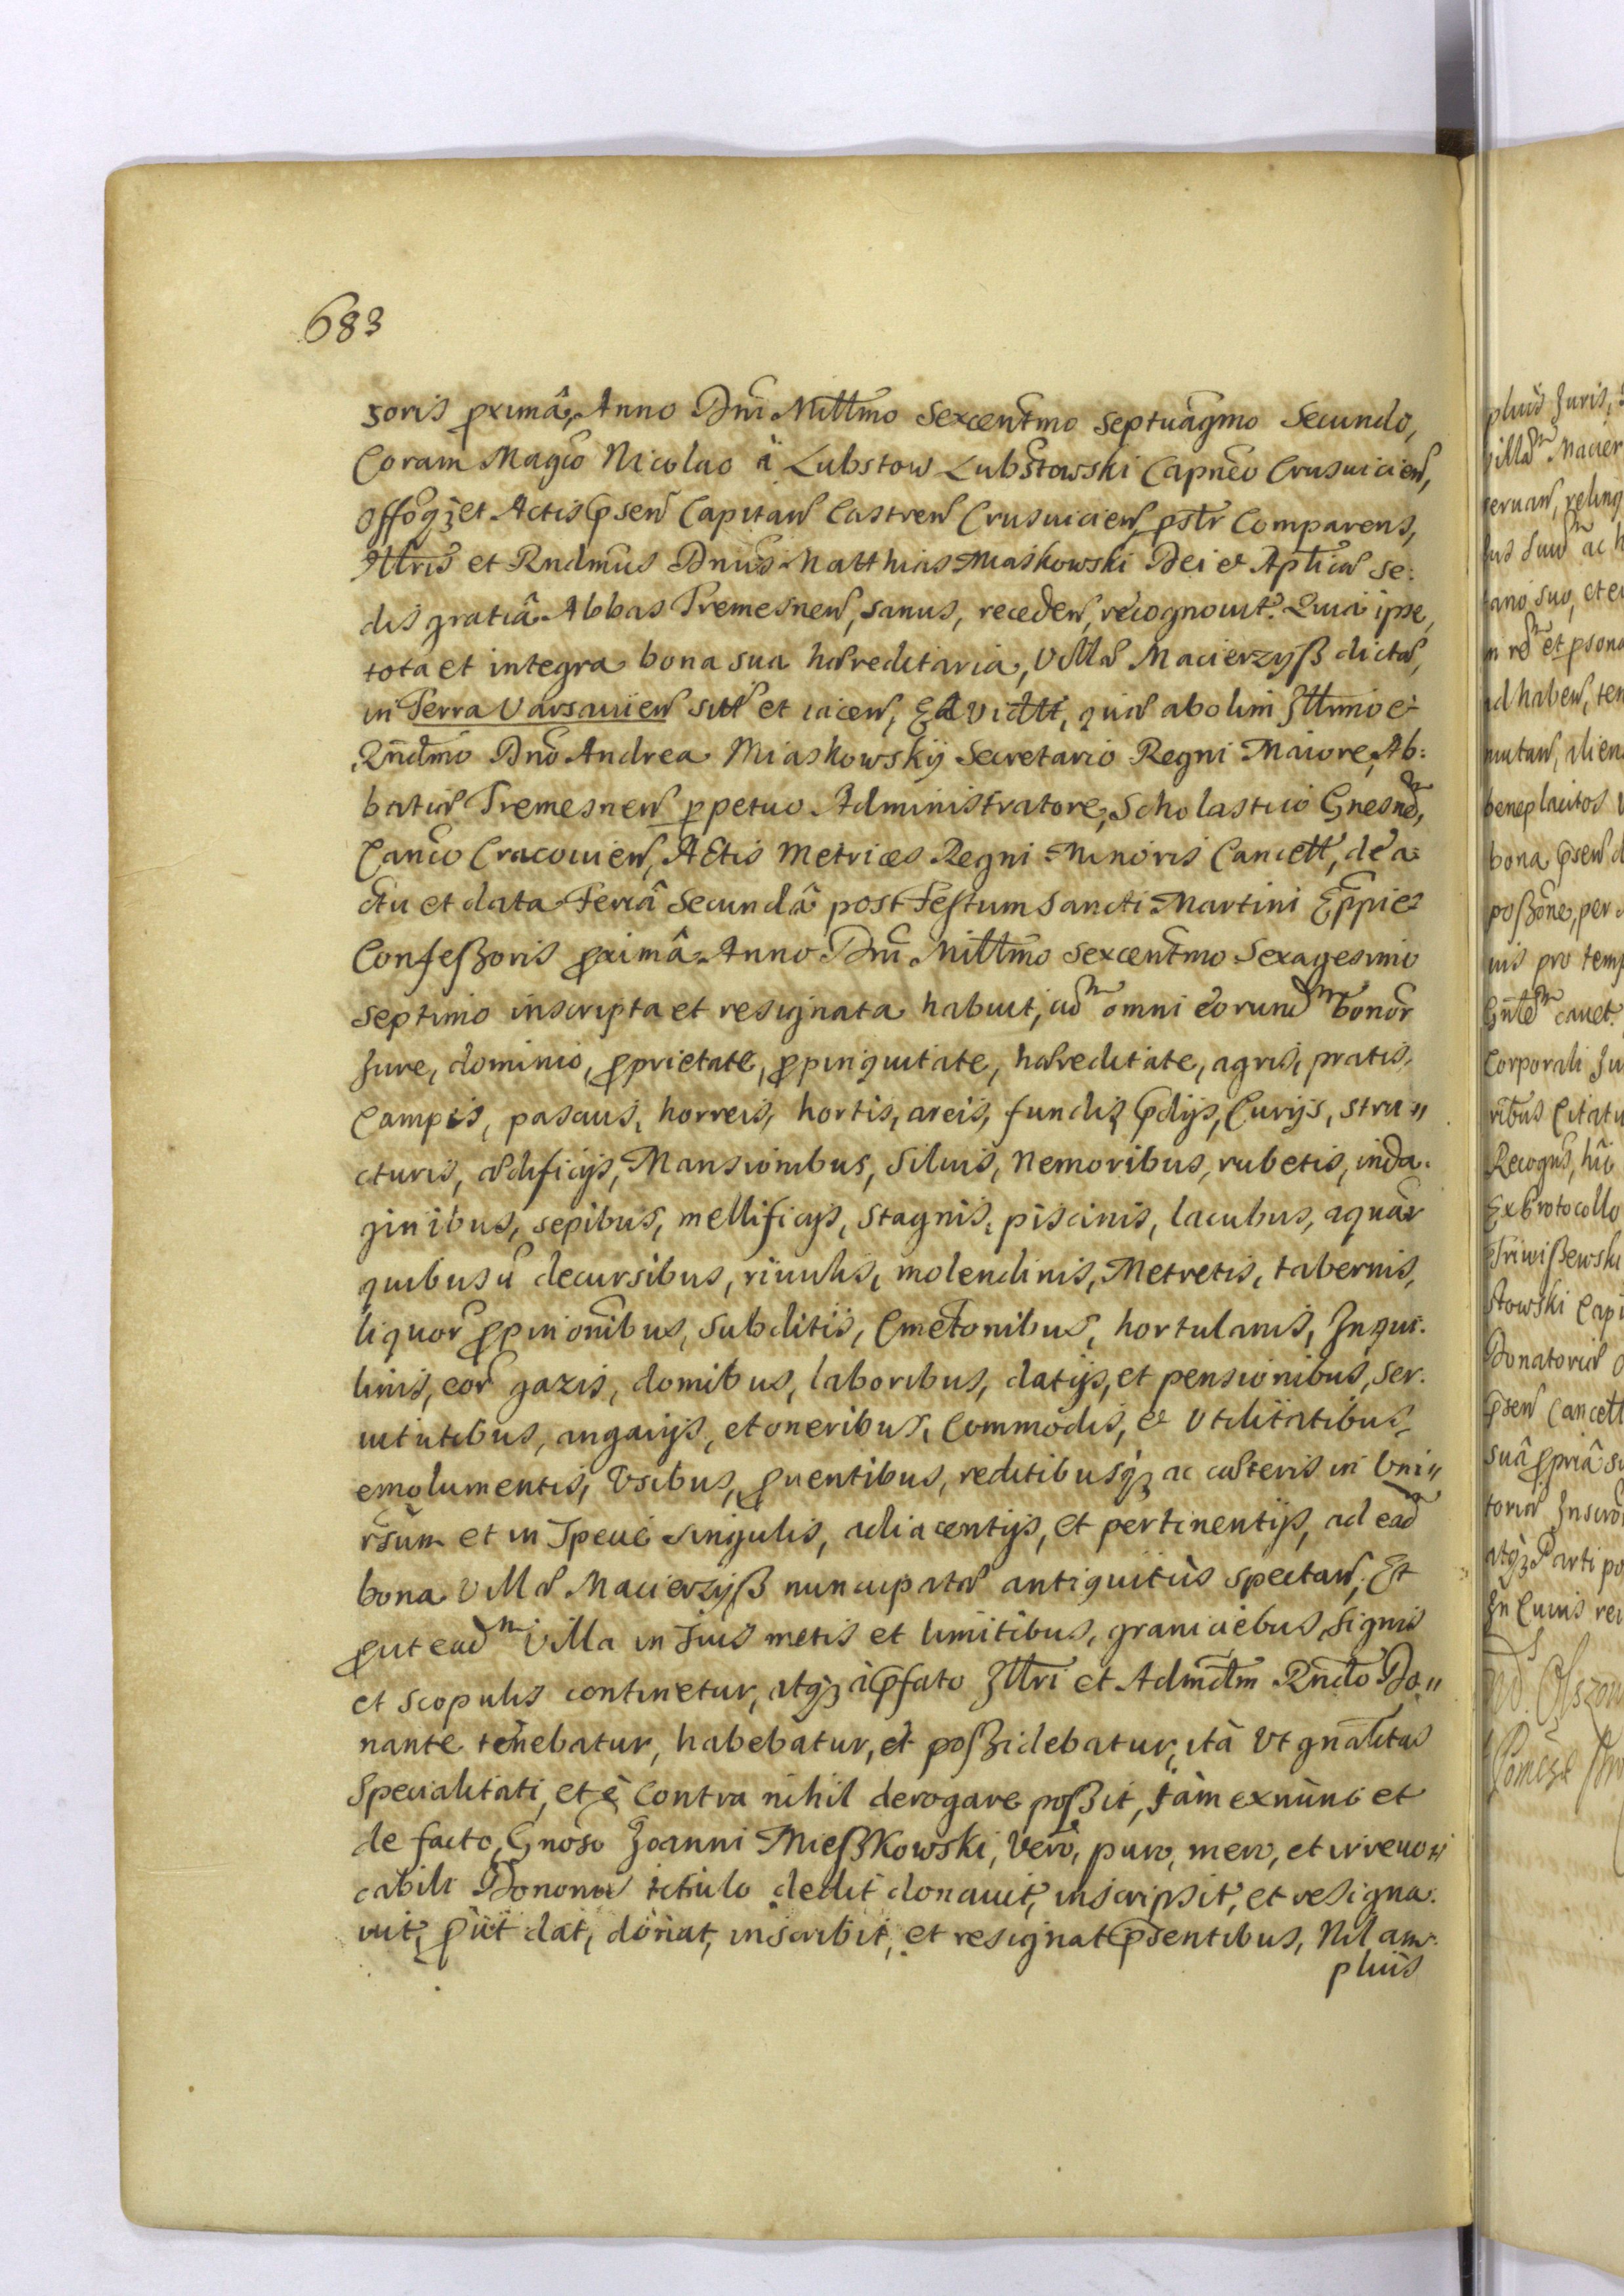 683
soris pximâ, Anno Dni Millmo Sexcentmo Septuagmo Secundo,
Coram Magco Nicolao à Lubstow Lubstowski Capneo Crusuicien,
Offoqz et Actis psen Capitan Castren Crusuicien pstr Comparens,
Illris et Rndmus Dnus Matthias Miaskowski Dei et Aplicæ Se:
dis gratiâ Abbas Tremesnen, sanus, receden, recognouit. Quia ipse,
tota et integra bona sua hæreditaria, Villæ Macierzyß dictæ,
in Terra Varsauien sitt et iacen, Ea vidtt, quæ ab olim Illrmo et
Rndmo Dno Andrea Miaskowskij Secretario Regni Maiore, Ab:
batiæ Tremesnen ppetuo Administratore, Scholastico Gnesn,
Canco Cracouien, Actis Metrices Regni Minoris Cancell, de a:
ctu et data Feriâ Secundâ post Festum Sancti Martini Eppi et
Confeßoris pximâ Anno Dni Millmo Sexcentmo Sexagesimo
Septimo inscripta et resignata habuit, cu omni eorund bonor
Jure, dominio, pprietate, ppinquitate, hæreditate, agris, pratis,
Campis, pascuis, horreis, hortis, areis, fundis, pdijs, Curijs, stru"
cturis, ædificijs, Mansionibus, Siluis, Nemoribus, rubetis, inda:
ginibus, sepibus, mellificijs, Stagnis, piscinis, lacubus, aquar
quibusu decursibus, riuulis, molendinis, Metretis, tabernis,
liquor ppinonibus, Subditis, Cmetonibus, hortulanis, Inqui:
linis, eor gazis, domibus, laboribus, datijs, et pensionibus, Ser:
uitutibus, angarijs, et oneribus, Commodis, et Vtilitatibus,
emolumentis, Vsibus, puentibus, reditibusqz ac cæteris in Vni"
rsum et in Specie Singulis, adiacentijs, et pertinentijs, ad ead
bona Villæ Macierzyß nuncupatæ antiquitùs spectan, Et
put ead Villa in Suis metis et limitibus, graniciebus, Signis
et scopulis continetur, atqz à pfato Illri et Admdm Rndo Do"
nante tenebatur, habebatur, et poßidebatur, ità Vt gnalitas
Specialitati, et è Contra nihil derogare poßit, jàm ex nùnc et
de facto, Gnoso Joanni Mießkowski, Vero, puro, mero, et irreuo"
cabili Dononis titulo dedit donauit, inscripsit, et resigna:
uit, put dat, donat, inscribit, et resignat psentibus, Nil am:
pliùs